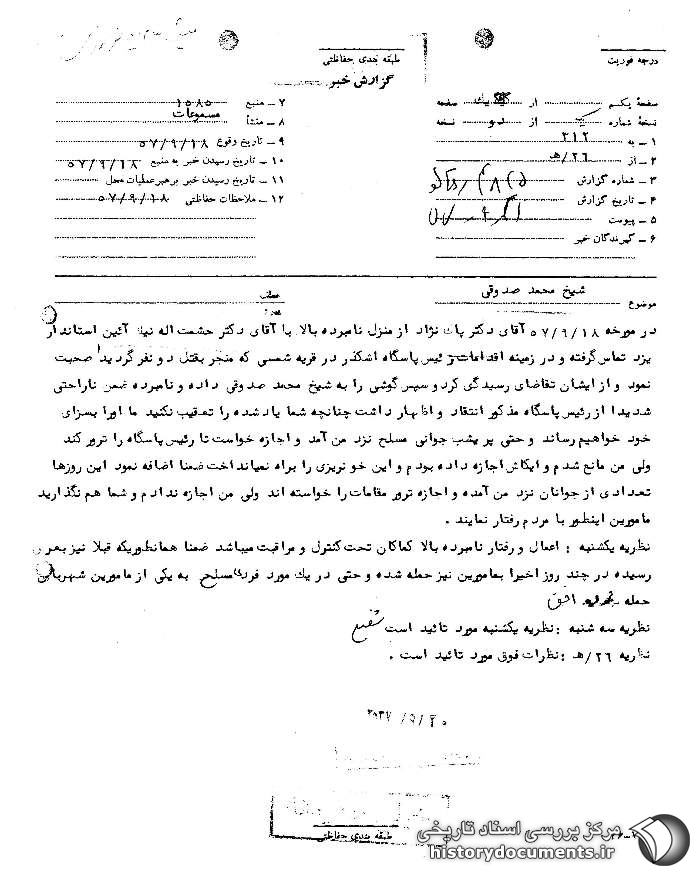 درجه فوریت
طبقه بندی حفاظتی
گزارش خبر
صفحهٔ یکم از یک صفحه
نسخهٔ شماره یک از دو نسخه
۱ ـ به ۳۱۲
۲ ـ از ۲۶/ه‍
۳ ـ شماره گزارش
۴ ـ تاریخ گزارش
۵ ـ پیوست
۶ ـ گیرندگان خبر
۷ ـ منبع ۱۵۸۵
۸ ـ منشأ مسموعات
۹ ـ تاریخ وقوع ۵۷/۹/۱۸
۱۰ ـ تاریخ رسیدن خبر به منبع ۵۷/۹/۱۸
۱۱ ـ تاریخ رسیدن خبر برهبر عملیات محل
۱۲ ـ ملاحظات حفاظتی ۵۷/۹/۱۸
موضوع شیخ محمد صدوقی
در مورخه ۵۷/۹/۱۸ آقای دکتر پاک نژاد از منزل نامبرده بالا با آقای دکتر حشمت اله نیک آئین استاندار
یزد تماس گرفته و در زمینه اقدامات رئیس پاسگاه اشکذر در قریه شمسی که منجر بقتل دو نفر گردید صحبت
نمود و از ایشان تقاضای رسیدگی کرد و سپس گوشی را به شیخ محمد صدوقی داده و نامبرده ضمن ناراحتی
شدیدا از رئیس پاسگاه مذکور انتقاد و اظهار داشت چنانچه شما یاد شده را تعقیب نکنید ما او را بسزای
خود خواهیم رساند و حتی پریشب جوانی مسلح نزد من آمد و اجازه خواست تا رئیس پاسگاه را ترور کند
ولی من مانع شدم و ایکاش اجازه داده بودم و این خونریزی را براه نمیانداخت ضمنا اضافه نمود این روزها
تعدادی از جوانان نزد من آمده و اجازه ترور مقامات را خواسته اند ولی من اجازه ندادم و شما هم نگذارید
مامورین اینطور با مردم رفتار نمایند .
نظریه یکشنبه : اعمال و رفتار نامبرده بالا کماکان تحت کنترل و مراقبت میباشد ضمنا همانطوریکه قبلا نیز بعرض
رسیده در چند روز اخیرا بمامورین نیز حمله شده و حتی در یک مورد فردی مسلح به یکی از مامورین شهربانی
حمله افق
نظریه سه شنبه : نظریه یکشنبه مورد تائید است شفیع
نظریه ۲۶/ه‍ : نظرات فوق مورد تائید است .
۲۵۳۷/۹/۲۰
طبقه بندی حفاظتی
مرکز بررسی اسناد تاریخی
historydocuments.ir